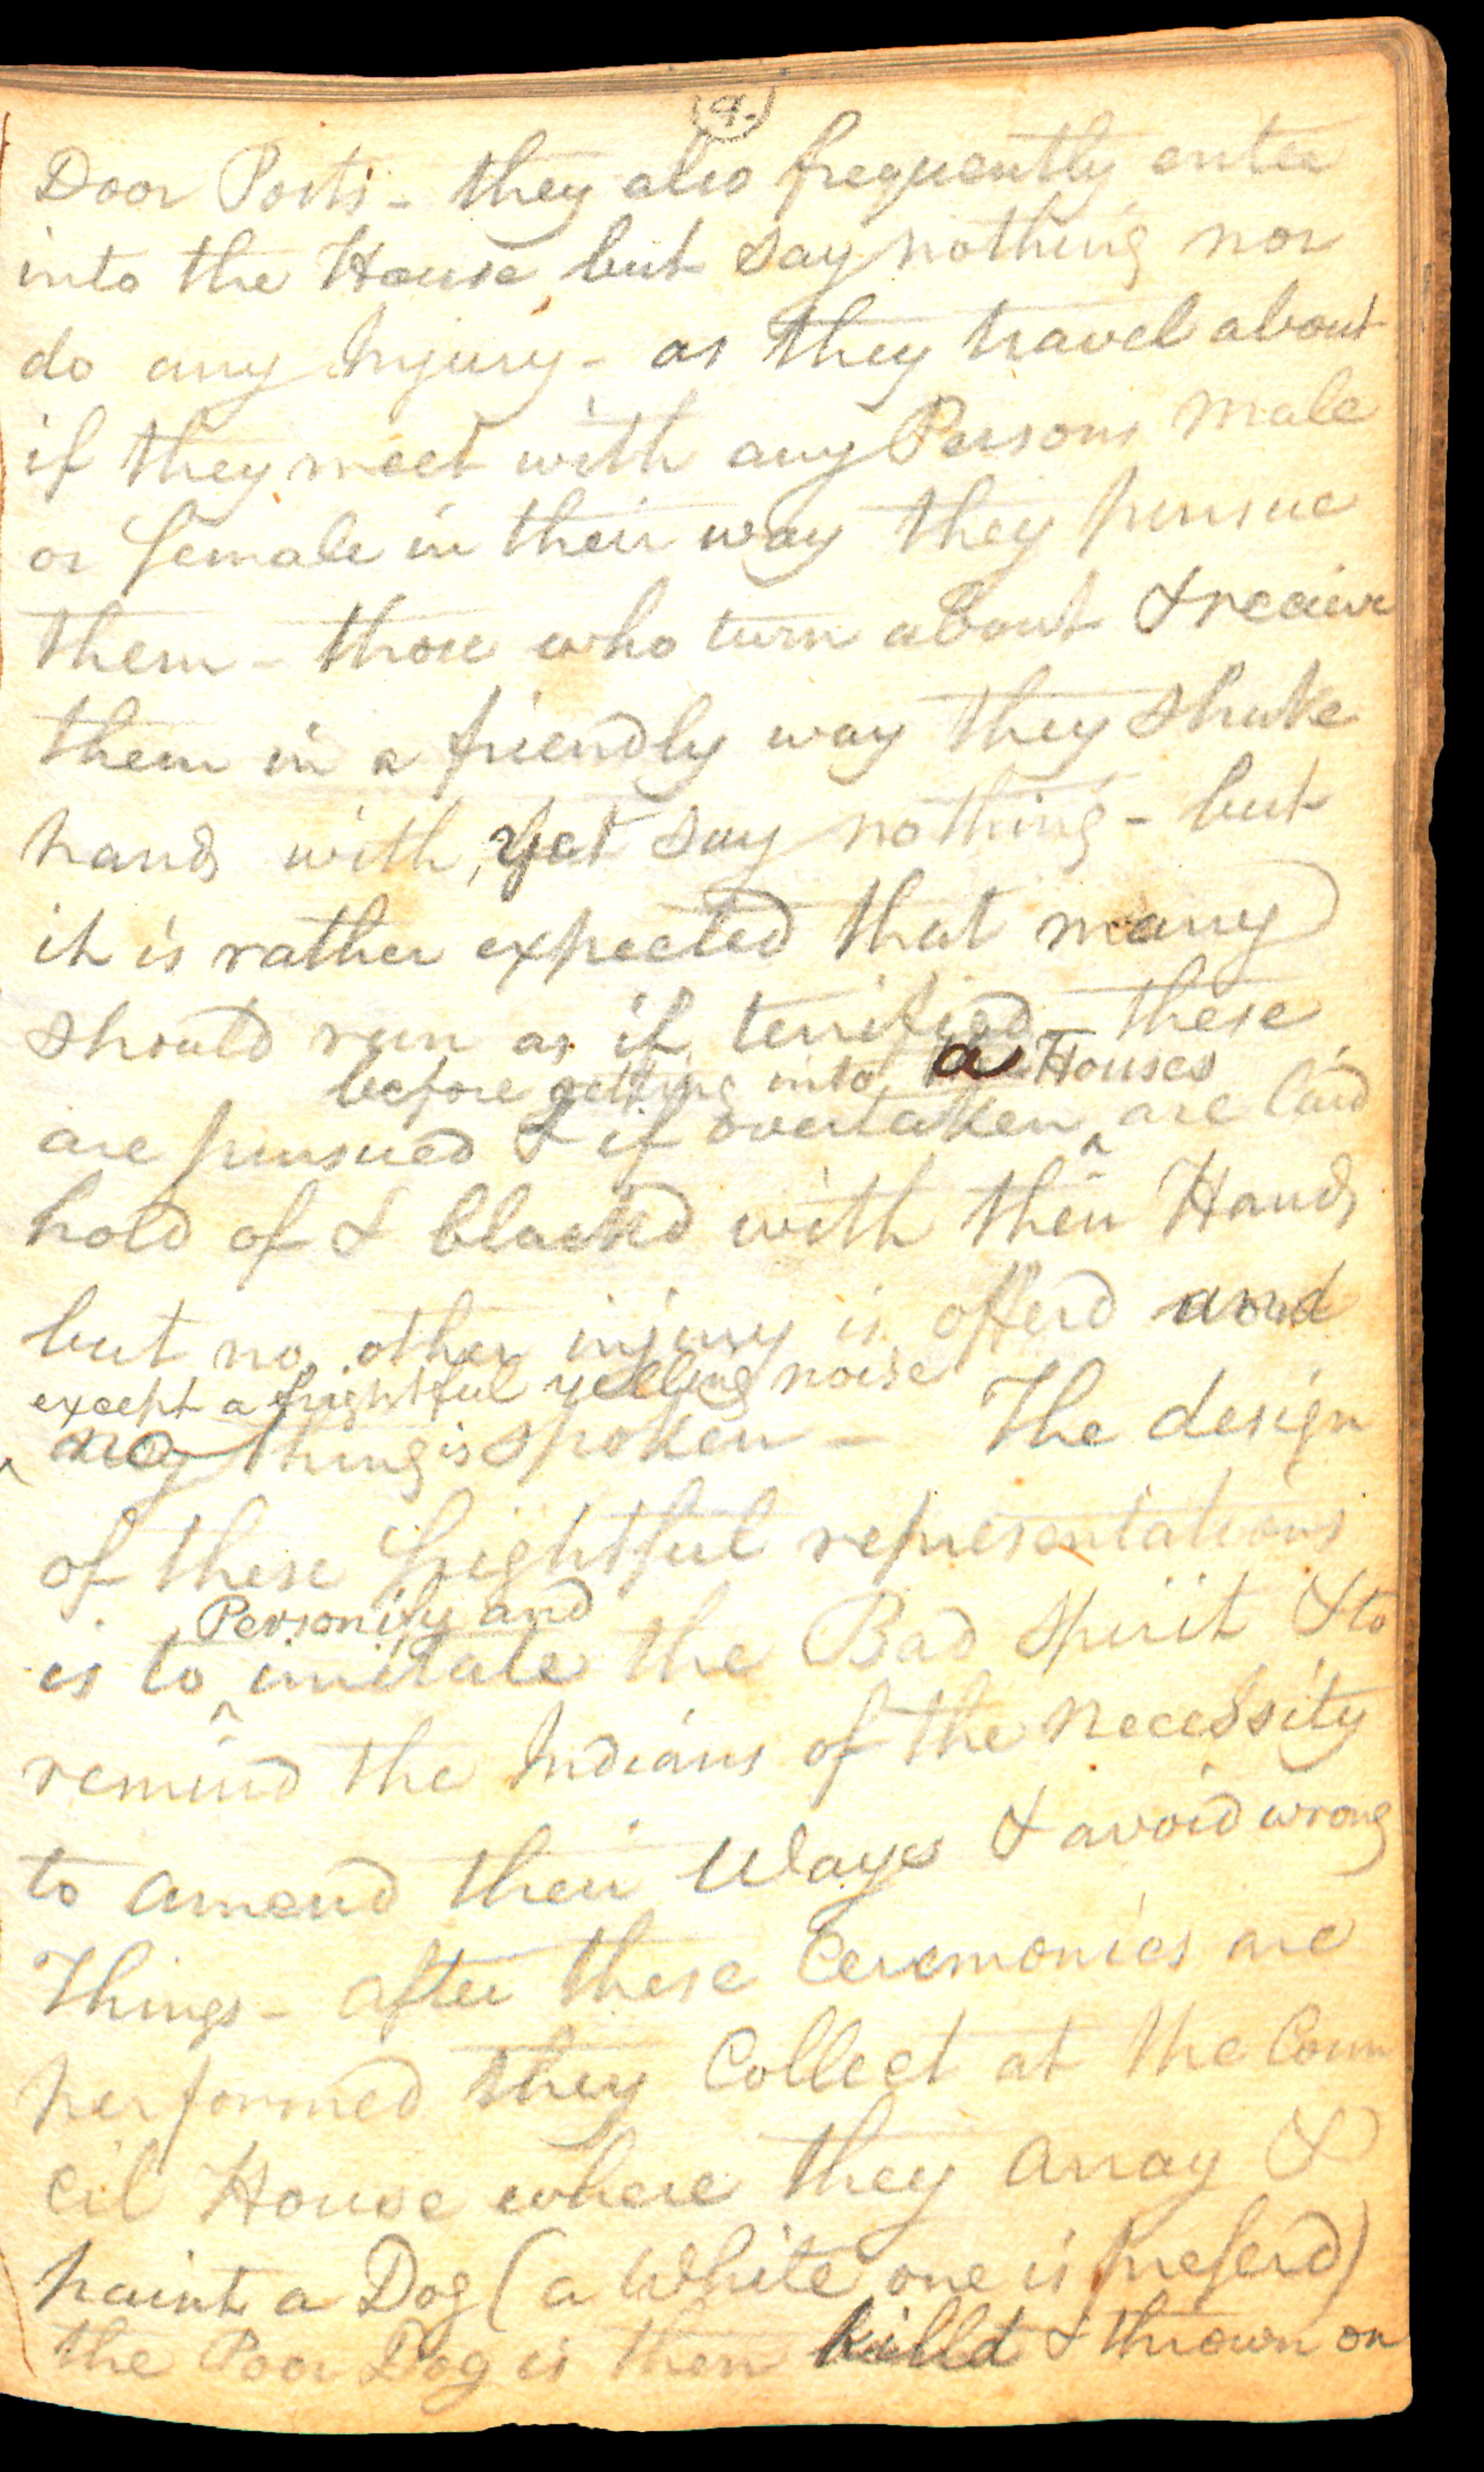 9.
Door Posts - they also frequently enter
into the House, but say nothing nor
do any Injury - as they travel about
if they meet with any Persons male
or female in their way they pursue
them - those who turn about & receive
them in a friendly way they shake
hands with, yet say nothing - but
it is rather expected that many
should run as if terrified - these
before getting into a Houses
are pursued & if overtaken ^ are laid
hold of & blacked with their Hands
but no other injury is offerd and
except a frightful yelling noise
^ any thing is spoken - The design
of these frightful representations
Personify and
is to ^ imitate the Bad Spirit & to
remind the Indians of the necessity
to amend their Ways & avoid wrong
Things - after these Ceremonies are
performed they Collect at the Coun
cil House where they array &
paint a Dog (a White one is preferd)
the Poor Dog is then killd & thrown on